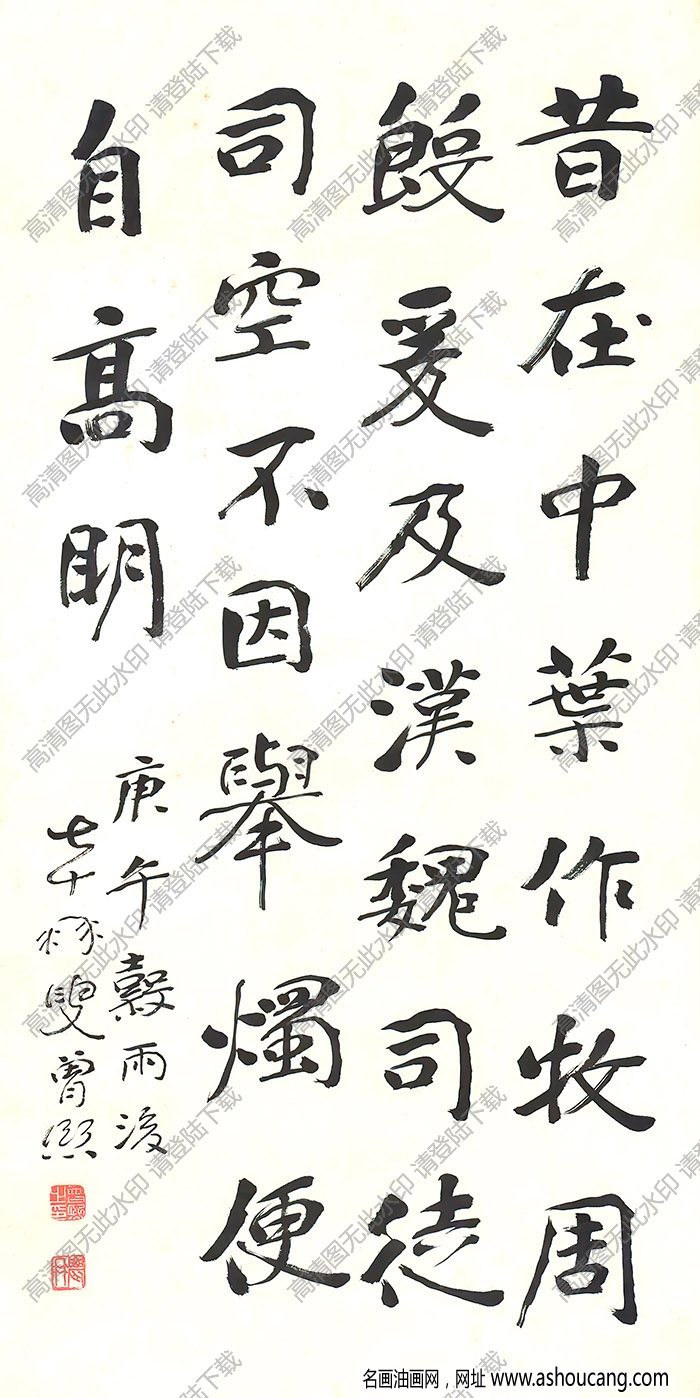 昔在中葉作牧周
爰及漢魏司徒
司空不因舉燭便
自高明
庚午穀雨後
七十叟曾熙
高清图无此水印 请登陆下载
名画油画网，网址 www.ashoucang.com